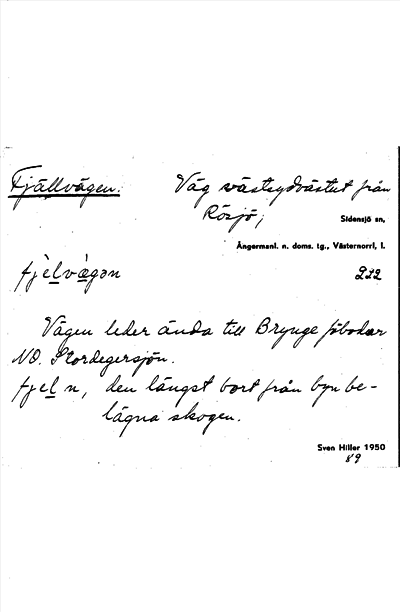 Fjällvägen.
Väg västsydvästut från
Rösjö;
Sidensjö sn,
Ångermanl. n. doms. tg., Västernorrl. l.
fjèlvæ̀gən
222
Vägen leder ända till Brynge fäbodar
NO. Stordegersjön.
fjel n, den längst bort från byn be-
lägna skogen.
Sven Hiller 1950
89